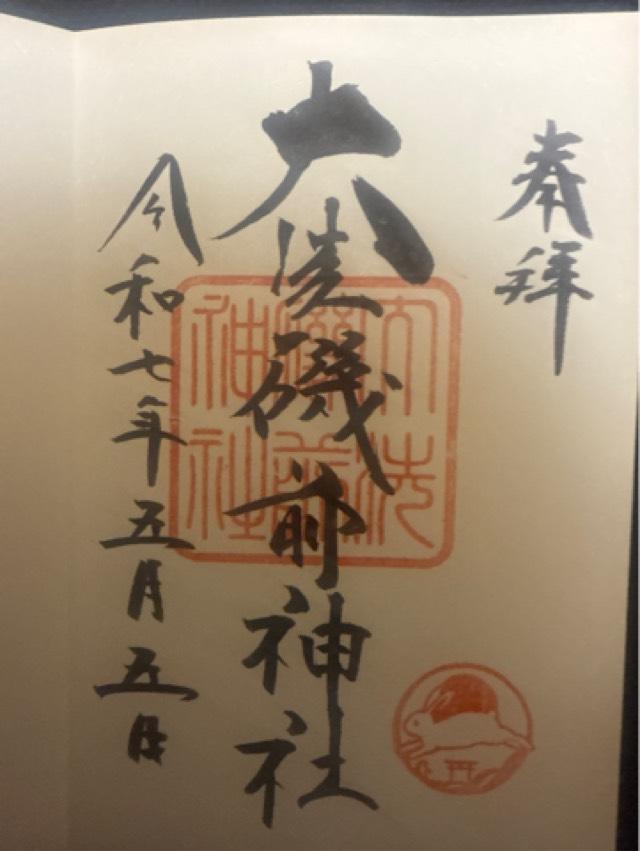 奉拝
大洗磯前神社
大洗
磯前
神社
令和七年五月五日